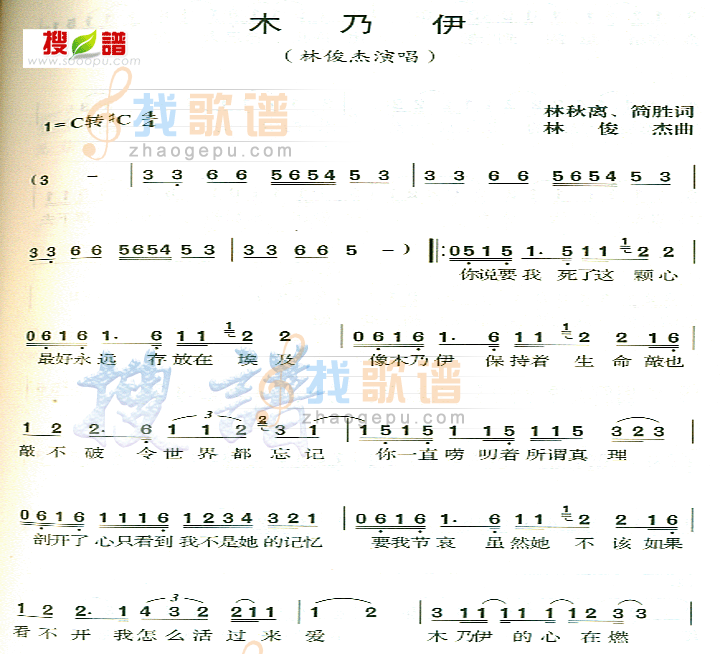 木 乃 伊
搜谱
www.sooopu.com
（林俊杰演唱）
林秋离、简胜词
林 俊 杰曲
1=C转♯C 4/4
找歌谱
zhaogepu.com
(3 - | 3 3 6 6 5654 5 3 | 3 3 6 6 5654 5 3 |
3 3 6 6 5654 5 3 | 3 3 6 6 5 -) ‖: 0515 1· 5 11 1 2 2 |
你说要我 死了这 颗心
0616 1· 6 11 1 2 2 | 0616 1· 6 11 1 2 2 16 |
最好永远 存放在 埃及 像木乃伊 保持着 生命敲也
搜谱
找歌谱
zhaogepu.com
1 2 2· 6 1 1 2 2 3 1 | 1515 1 15 115 323 |
敲不破 令世界都忘记 你一直唠叨着所谓真理
0616 1116 1234 321 | 0616 1· 6 11 1 2 2 16 |
剖开了心只看到我不是她的记忆 要我节哀 虽然她 不该如果
1 2 2· 1 4 3 2 211 | 1 2 3 111 11 1233 |
看不开 我怎么活过来爱 木乃伊的心在燃